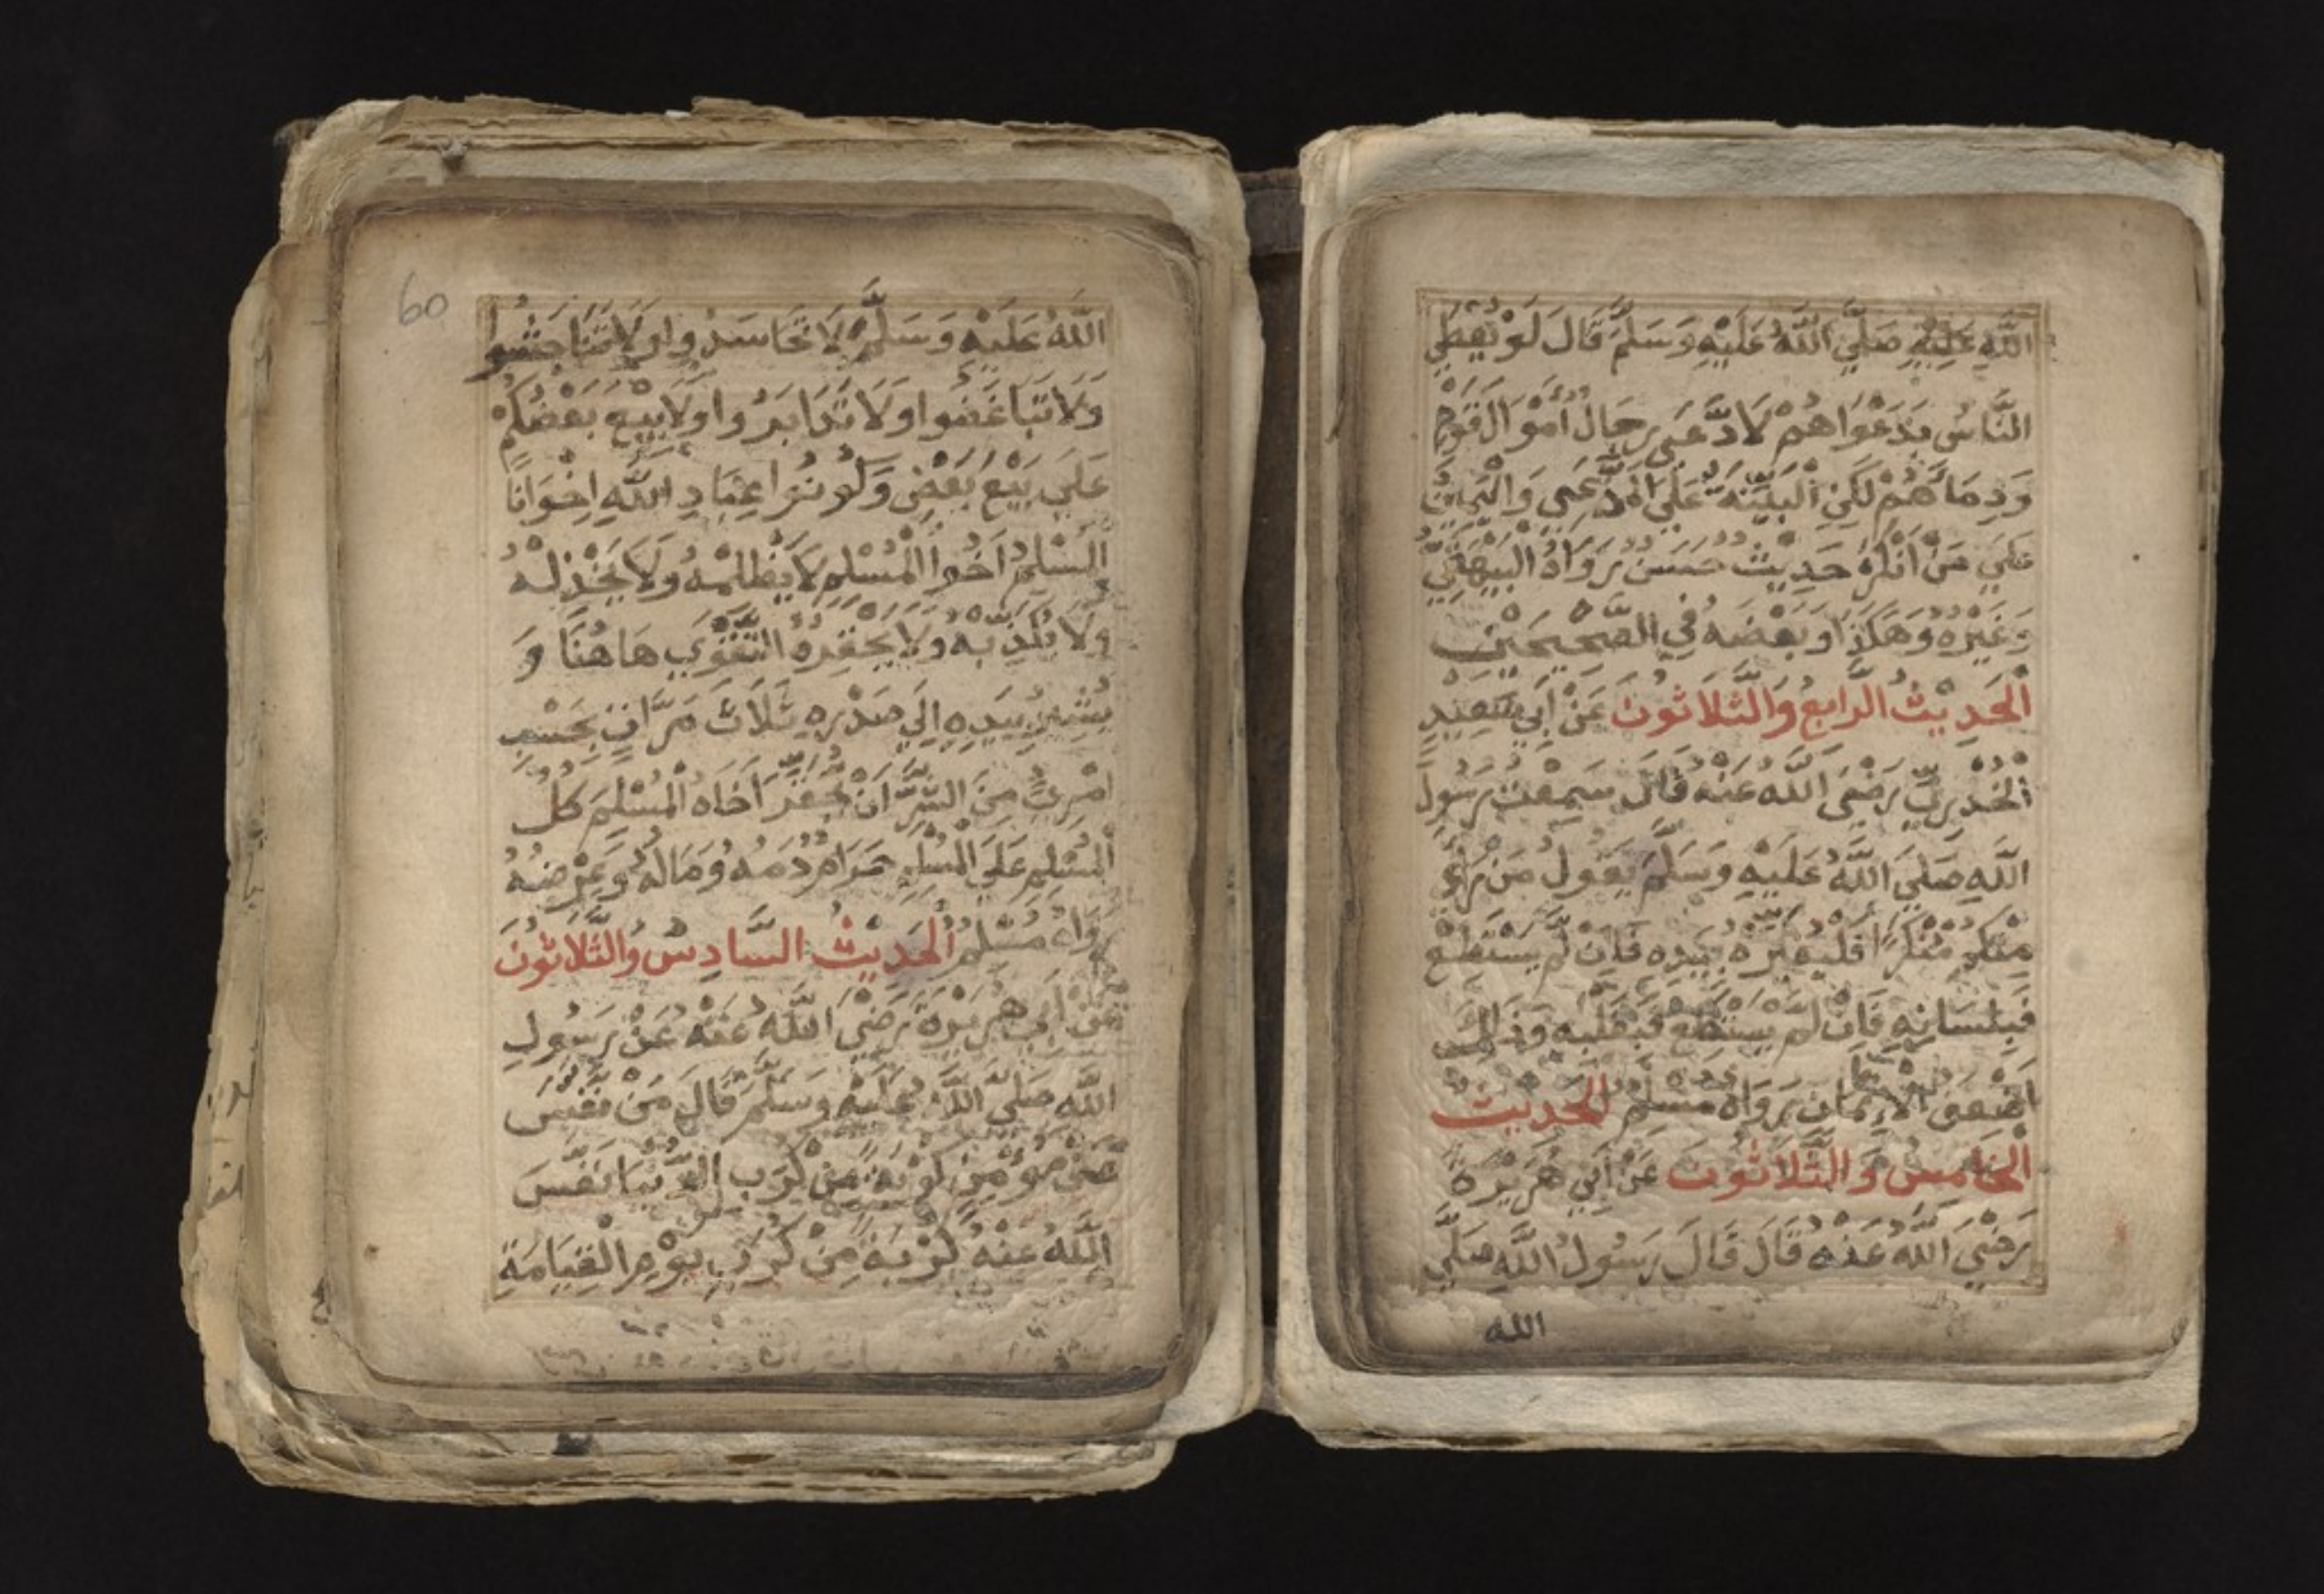 اللّهِ عَلَيْهِ صَلَّي اللّهُ عَلَيْهِ وَسَلَّمَ قَالَ لَوْ يُعْطَي
النَّاسُ بِدَعْوَاهُمْ لَادَّعَى رِجَالٌ أَمْوَالَ قَوْمٍ
وَدِمَاءَهُمْ لَكِنِ الْبَيِّنَةُ عَلَي الْمُدَّعِي وَالْيَمِينُ
عَلَي مَنْ أَنْكَرَ حَدِيثٌ حَسَنٌ رَوَاهُ الْبَيْهَقِيُّ
وَغَيْرُهُ وَهَكَذَا وَبَعْضُهُ فِي الصَّحِيحَيْنِ
اَلْحَدِيْثُ الرَّابِعُ وَالثَّلَاثُونَ عَنْ اَبِي سَعِيْدٍ
الْخُدْرِيِّ رَضِيَ اللّهُ عَنْهُ قَالَ سَمِعْتُ رَسُولَ
اللّهِ صَلَي اللّهُ عَلَيْهِ وَسَلَّمَ يَقُولُ مَنْ رَأَي
مِنْكُمْ مُنْكَرًا فَلْيُغَيِّرْهُ بِيَدِهِ فَاِنْ لَّمْ يَسْتَطِعْ
فَبِلِسَانِهِ فَاِنْ لَّمْ يَسْتَطِعْ فَبِقَلْبِهِ وَذَالِكَ
اَضْعَفُ الْاِيْمَانِ رَوَاهُ مُسْلِمٌ اَلْحَدِيْثُ
الْخَامِسُ وَالثَّلَاثُونَ عَنْ اَبِي هُرَيْرَةَ
رَضْيَ اللّهُ عَنْهُ قَالَ قَالَ رَسُولُ اللّهِ صَلَّي
الله
60
اللّهُ عَلَيْهِ وَسَلَّمَ لَا تَحَاسَدُوا وَلَا تَنَاجَشُوا
وَلَا تَبَاغَضُوا وَلَا تَدَابَرُوا وَلَا يَبِعْ بَعْضُكُمْ
عَلَي بَيْعِ بَعْضٍ وَكُونُوا عِبَادَ اللّهِ اِخْوَانًا
الْمُسْلِمُ اَخُوا الْمُسْلِمِ لَا يَظْلِمُهُ وَلَا يَخْذِلُهُ
وَلَا يُكَذِّبُهُ وَلَا يَحْقِرُهُ التَّقْوَي هَاهُنَا وَ
يُشِيْرُ بِيَدِهِ اِلَي صَدْرِهِ ثَلَاثَ مَرَّاتٍ بِحَسْبِ
امْرِئٍ مِنَ الشَّرِّ اَنْ يَحْقِرَ اَخَاهُ الْمُسْلِمَ كُلُّ
الْمُسْلِمِ عَلَي الْمُسْلِمِ حَرَامٌ دَمُهُ وَمَالُهُ وَعِرْضُهُ
رَوَاهُ مُسْلِمٌ اَلْحَدِيْثُ السَّادِسُ وَالثَّلَاثُونَ
عَنْ اَبِي هُرَيْرَةَ رَضِيَ اللّهُ عَنْهُ عَنْ رَسُولِ
اللّهِ صَلَّي اللّهُ عَلَيْهِ وَسَلَّمَ قَالَ مَنْ نَفَّسَ
عَنْ مُؤْمِنٍ كُرْبَةً مِنْ كُرَبِ الدُّنْيَا نَفَّسَ
اللّهُ عَنْهُ كُرْبَةً مِنْ كُرَبِ يَوْمِ الْقِيَامَةِ